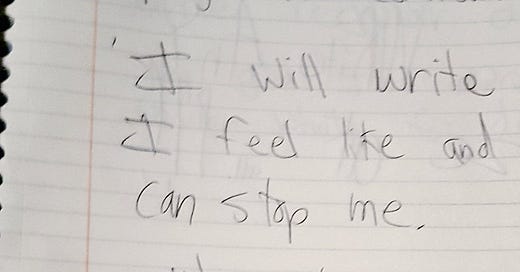 'I will write
I feel like and
can stop me.